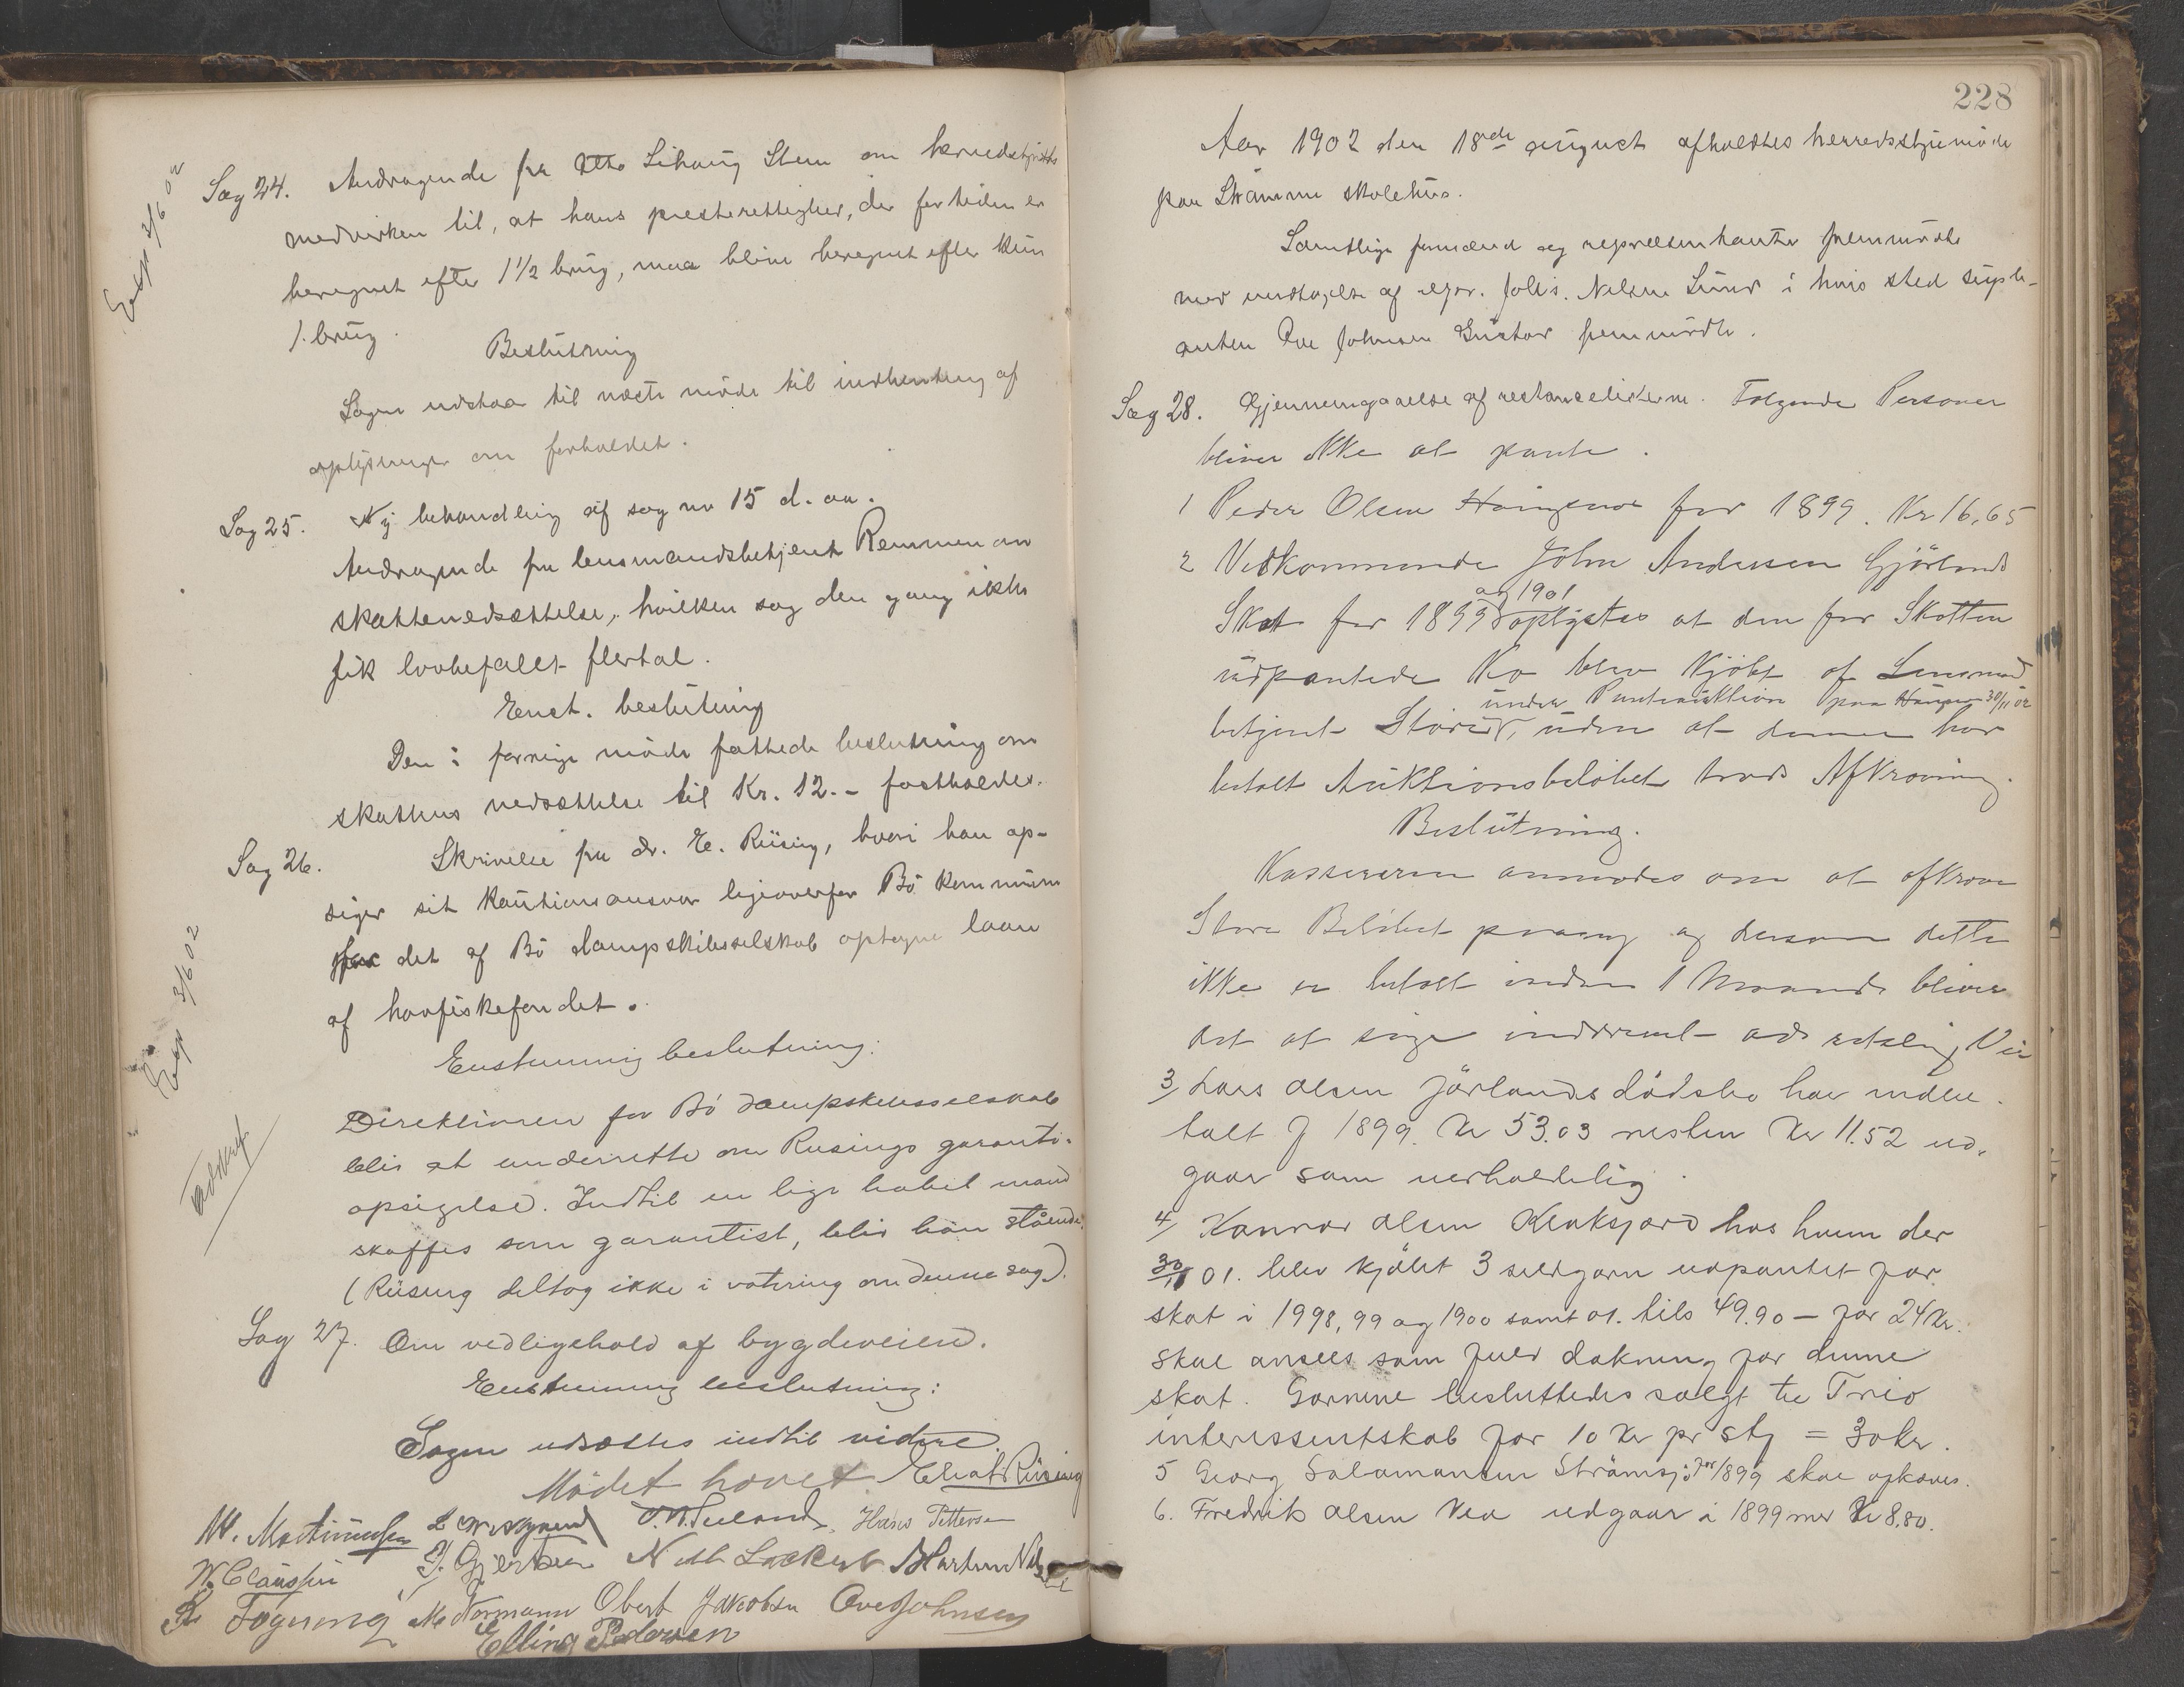 Sag 24. Andragende fra Otto Schong Steen om herredstyrets
medvirken til, at hans presterettigheder, der for tiden er
beregnet efter 1 1/2 brug, maa blive beregnet efter kun
1. brug.
Exp 3/6 02
Beslutning
Sagen udstaar til næste møde til indhentning af
oplysninger om forholdet.
Sag 25. Ny behandling af sag no 15 d. aa.
Andragende fra lensmandsbetjent Remmen om
skattenedsættelse, hvilken sag den gang ikke
fik lovbefalet flertal.
Enst. beslutning
Den i forrige møde fattede beslutning om
skattens nedsættelse til Kr. 12.- fastholdes.
Sag 26. Skrivelse fra dr. E. Rüsing, hvori han op-
siger sit kautionsansvar ligeoverfor Bö kommune
for det af Bö dampskibsselskab optagne laan
af havfiskefondet.
Exp 3/6 02
Enstemmig beslutning:
Direktionen for Bö dampskibsselskab
blir at underrette om Rüsings garanti-
opsigelse. Indtil en lige habil mand
skaffes som garantist, blir han stående.
(Rüsing deltog ikke i votering om denne sag).
Udskrift
Sag 27. Om vedligehold af bygdeveiene.
Enstemmig beslutning:
Sagen udsættes indtil videre.
Mødet hævet. Rüsing
M. Martinussen Hans Pettersen
W. Claussen P. Gjertsen Lockert Martin
Fogning M. Normann Obert Jakobsen Ove Johnsen
Elling Pedersen
228
Aar 1902 den 18de august afholdtes herredsstyremøde
paa Straumme skolehus.
Samtlige formænd og repræsentanter fremmødte
med undtagelse af repr. Johs. Nilsen Lund i hvis sted suple-
anten Ove Johnsen Guvtov fremmødte.
Sag 28. Gjennemgaaelse af restancelisterne. Følgende Personer
bliver ikke at pante.
1 Peder Olsen Haugsnes for 1899. Kr 16,65
2 Vedkommende John Andersen Gjörlands
og 1901
Skat for 1899 oplystes at den for Skatten
udpantede Ko blev kjöbt af Lensmand
under Panteauktion paa 30/11 02
betjent Storø, uden at denne har
betalt Auktionsbeløbet trods Afkræving.
Beslutning.
Kassereren anmodes om at afkræve
Storø Beløbet paany og dersom dette
ikke er betalt inden 1 Maaned bliver
det at søge inddrevet ad retslig Vei
3 Lars Olsen Jörlands dødsbo har indbe-
talt f 1899. Kr 53.03 resten Kr 11.52 ud-
gaar som uerholdelig.
4 Konrad Olsen Klaksjord hos hvem der
30/11 01. blev kjöbt 3 sildgarn udpantet for
skat i 1998, 99 og 1900 samt 01. tils 49.90 – for 24 Kr.
skal ansees som fuld dækning for denne
skat. Garnene besluttedes sælgt til Trio
interessentskab for 10 Kr pr stg = 30 Kr.
5 Georg Salamonsen Strømsjö for 1899 skal afkræves.
6. Fredrik Olsen Vea udgaar i 1899 med Kr 8.80.